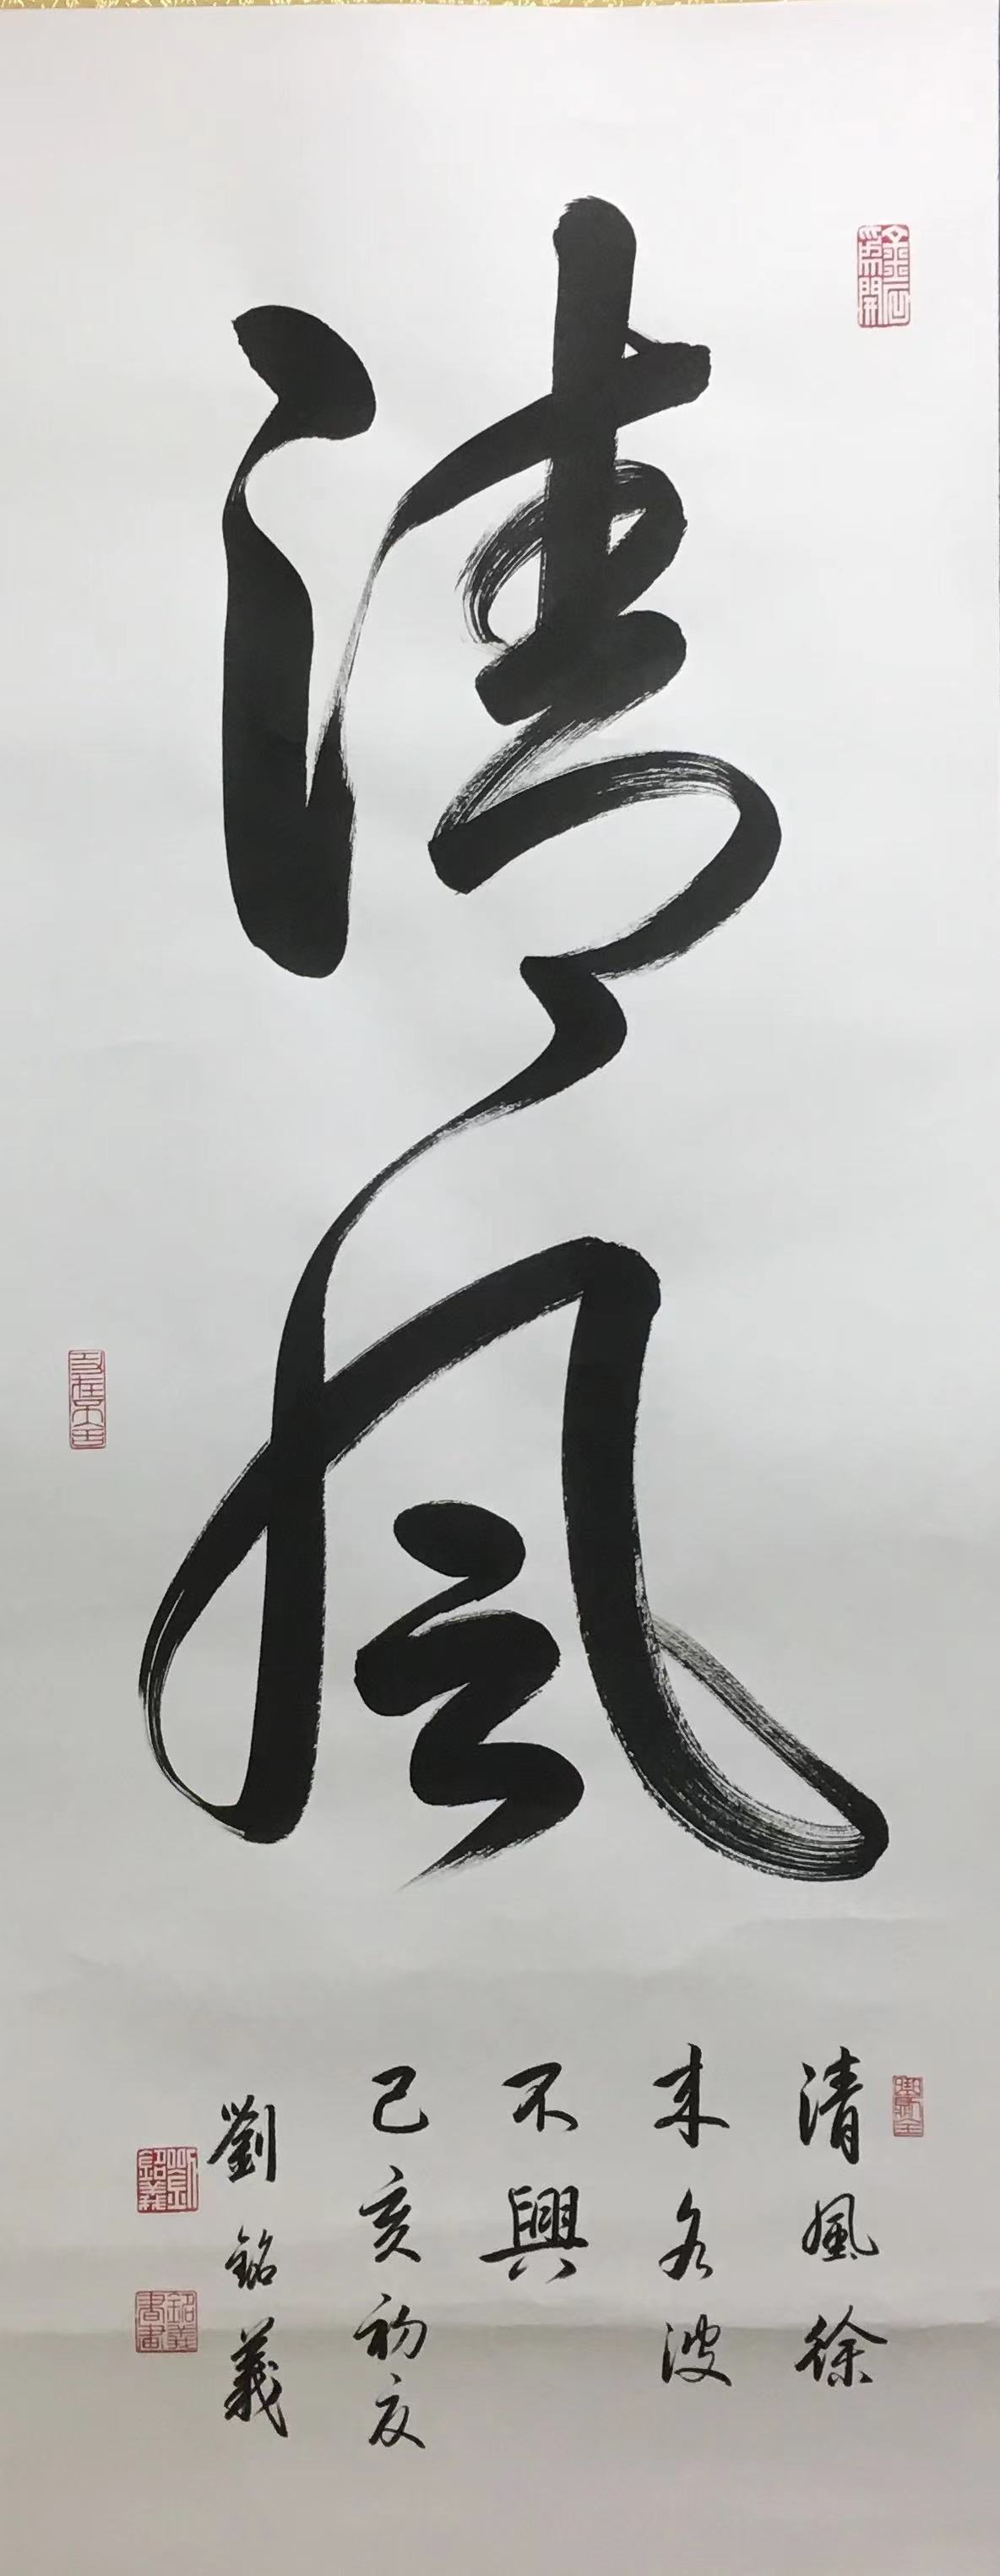 清風
清風徐
来水波
不興
己亥初夏
劉銘義
劉銘義
銘義書畫